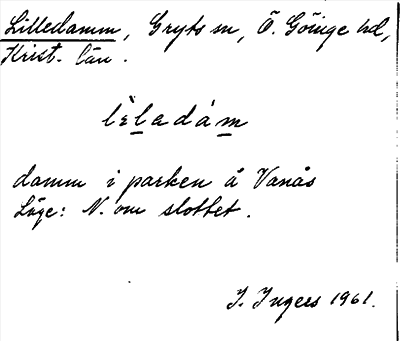 Lilledamm, Gryts sn, Ö. Göinge hd,
Krist. län.
lìledám
damm i parken å Vanås
Läge: N. om slottet.
I. Ingers 1961.